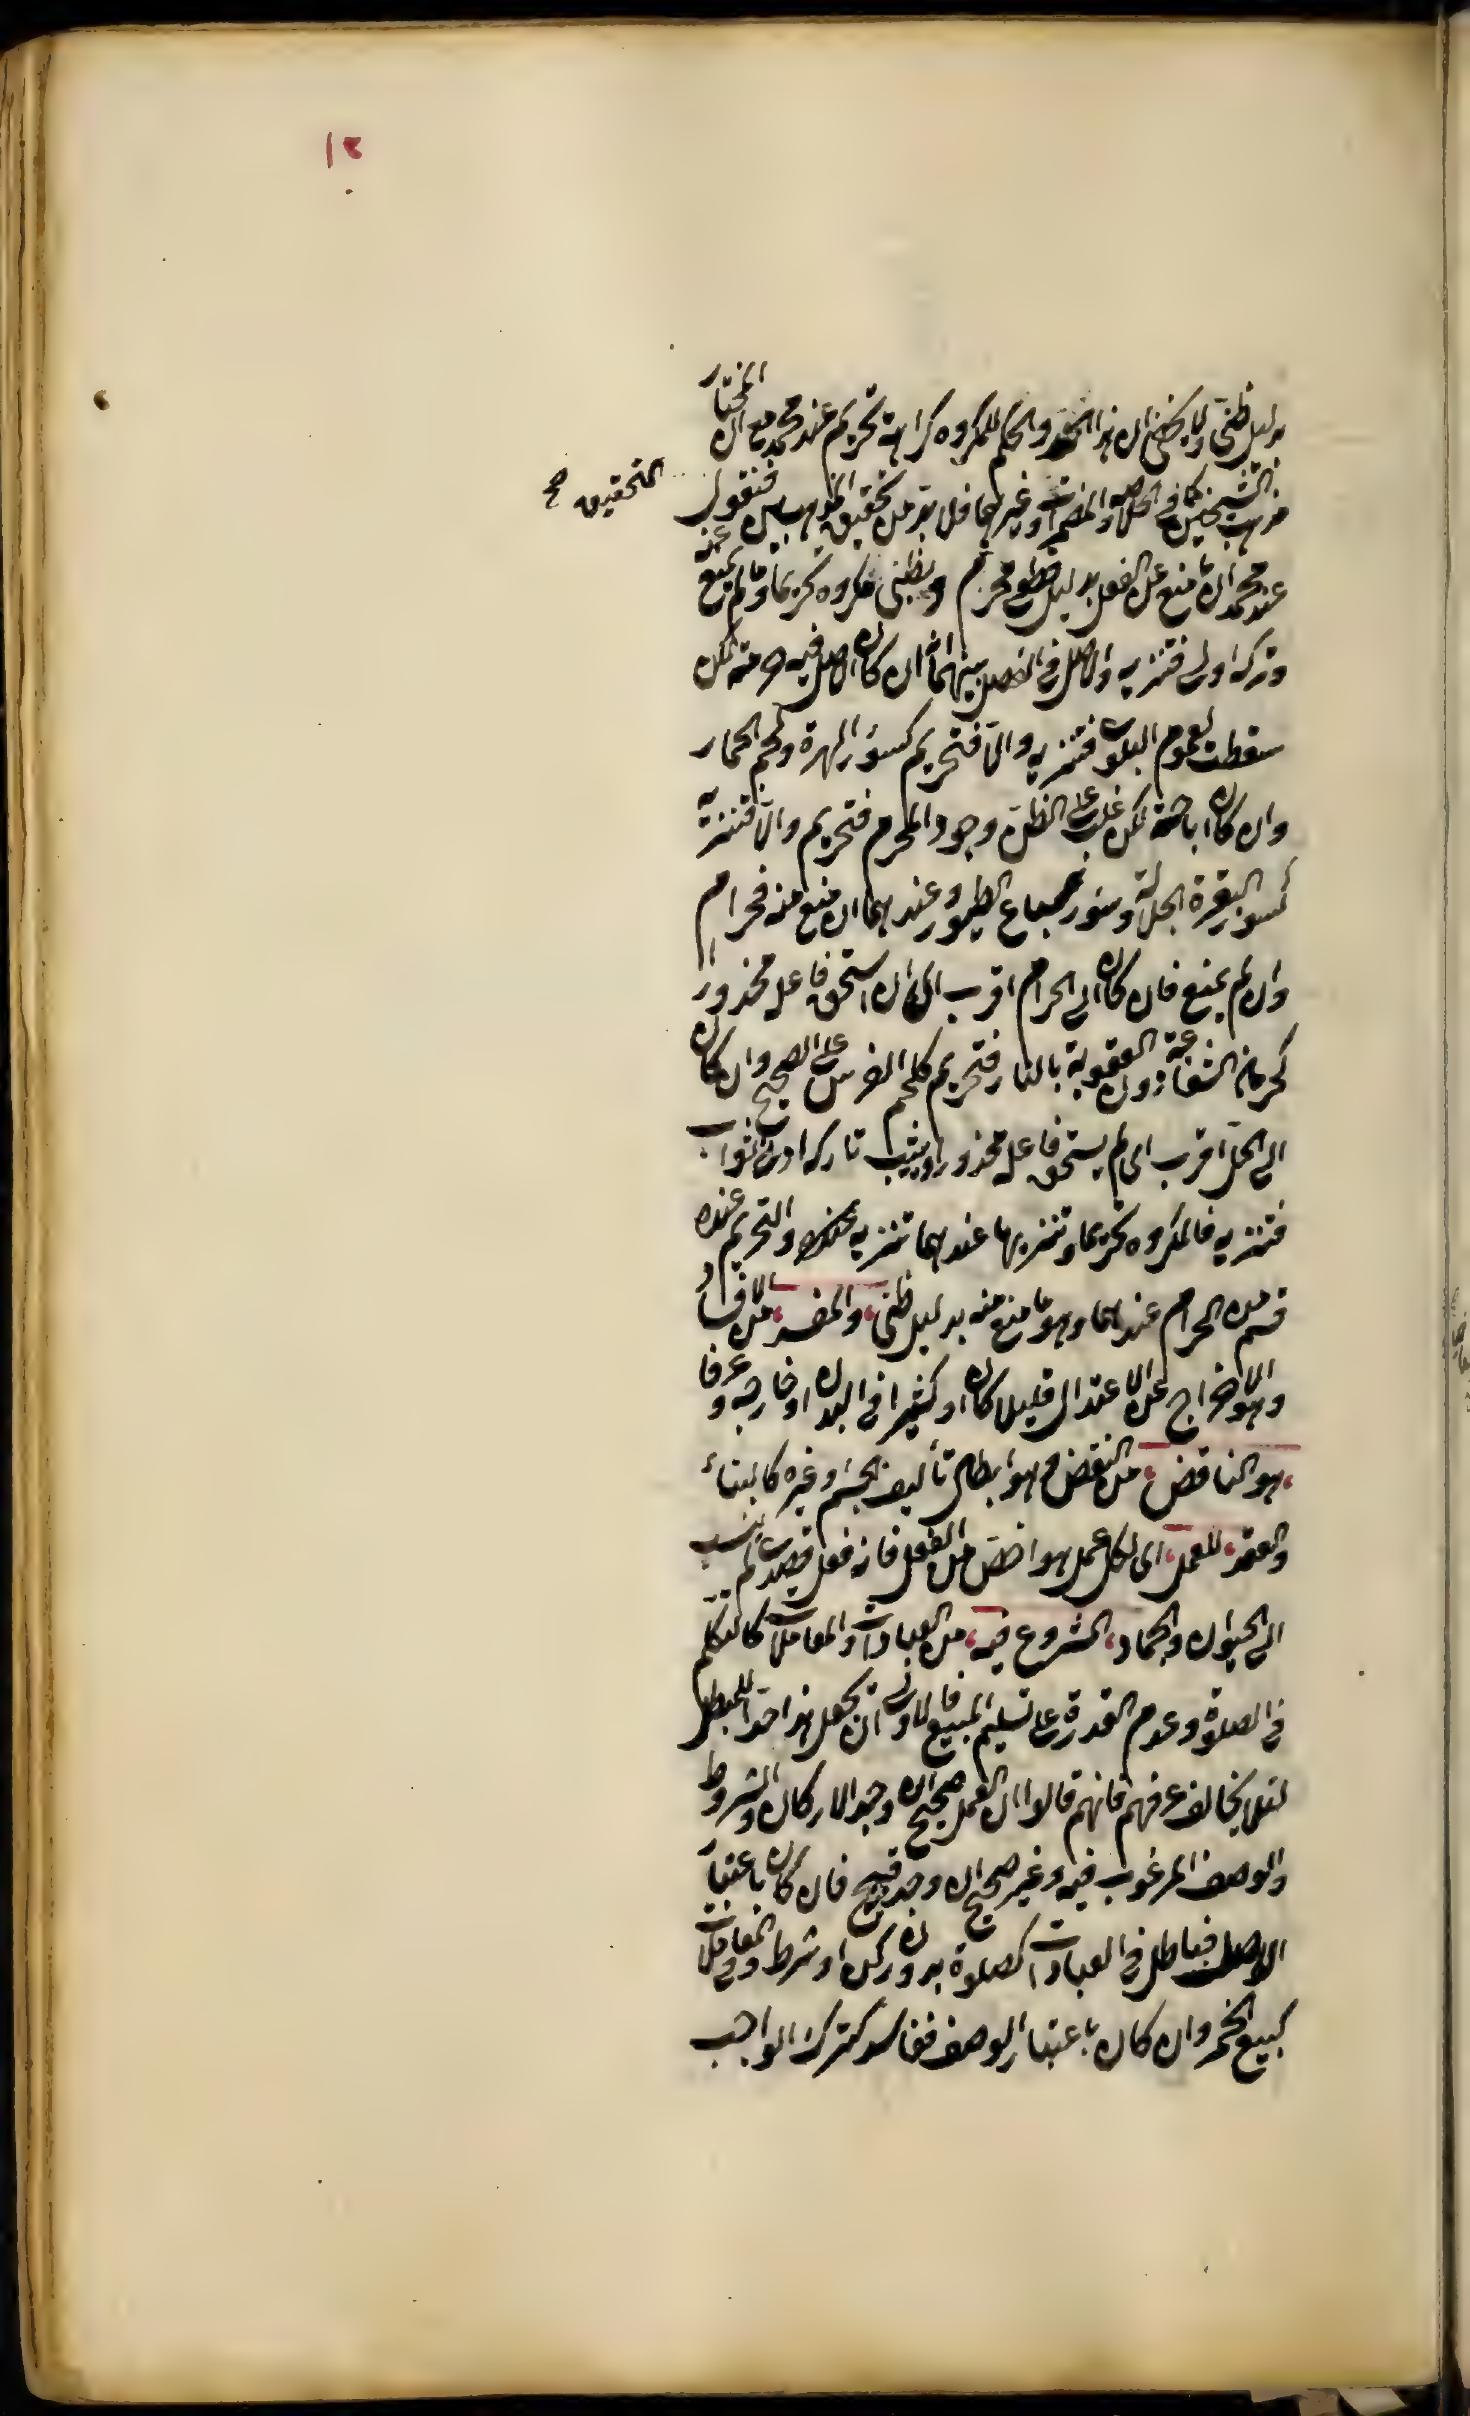 ١٤
بدليل ظني ولا يخفى ان هذا الحد والحكم للمكروه كراهة تحريم عند محمد مع ان المختار
مذهب الشيخين كما في الخلاصة والمضمرات وغيرهما فلا بد من تحقيق المذهبين فنقول
التحقيق صح
عند محمد ان ما منع عن الفعل بدليل قطعي محرم وبظني مكروه تحريما وما لم يمنع عنه
وتركه اولى فتنزيه والاصل في الفصل بينهما ان كان الاصل فيه حرمته لكن
سقطت لعموم البلوى فتنزيه والا فتحريم كسؤر الهرة ولحم الحمار
وان كان اباحته لكن غلب على الظن وجود المحرم فتحريم والا فتنزيه
كسؤر البقرة الجلالة وسؤر سباع الطيور وعندهما ان منع منه فحرام
وان لم يمنع فان كان الى الحرام اقرب اي ان استحق فاعله محذورا
كحرمان الشفاعة دون العقوبة بالنار فتحريم كلحم الفرس على الصحيح وان كان
الى الحل اقرب اي لم يستحق فاعله محذورا ويثيب تاركه ادنى ثواب
فتنزيه فالمكروه تحريما وتنزيها عندهما تنزيه عنده والتحريم عنده
قسم من الحرام عندهما وهو ما منع منه بدليل ظني والمفسد من الافساد
وهو الاخراج عن الاعتدال قليلا كان او كثيرا في البدن او خارجه وعرفا
هو الناقض من النقض وهو ابطال تأليف الجسم وغيره كالبناء
والعقد للعمل اي لكل عمل هو اخص من الفعل فانه فعل قصدي لم ينسب
الى الحيوان والجماد المشروع فيه من العبادات والمعاملات كالتكلم
في الصلوة وعدم القدرة على تسليم المبيع فالاولى ان يجعل هذا حدا للمبطل
لئلا يخالف عرفهم فانهم قالوا ان العمل صحيح ان وجد الاركان والشروط
والوصف المرغوب فيه وغير صحيح ان وجد قبيح فان كان باعتبار
الاصل فباطل في العبادات كصلوة بدون ركن او شرط وفي المعاملات
كبيع الخمر وان كان باعتبار الوصف ففاسد كترك الواجب